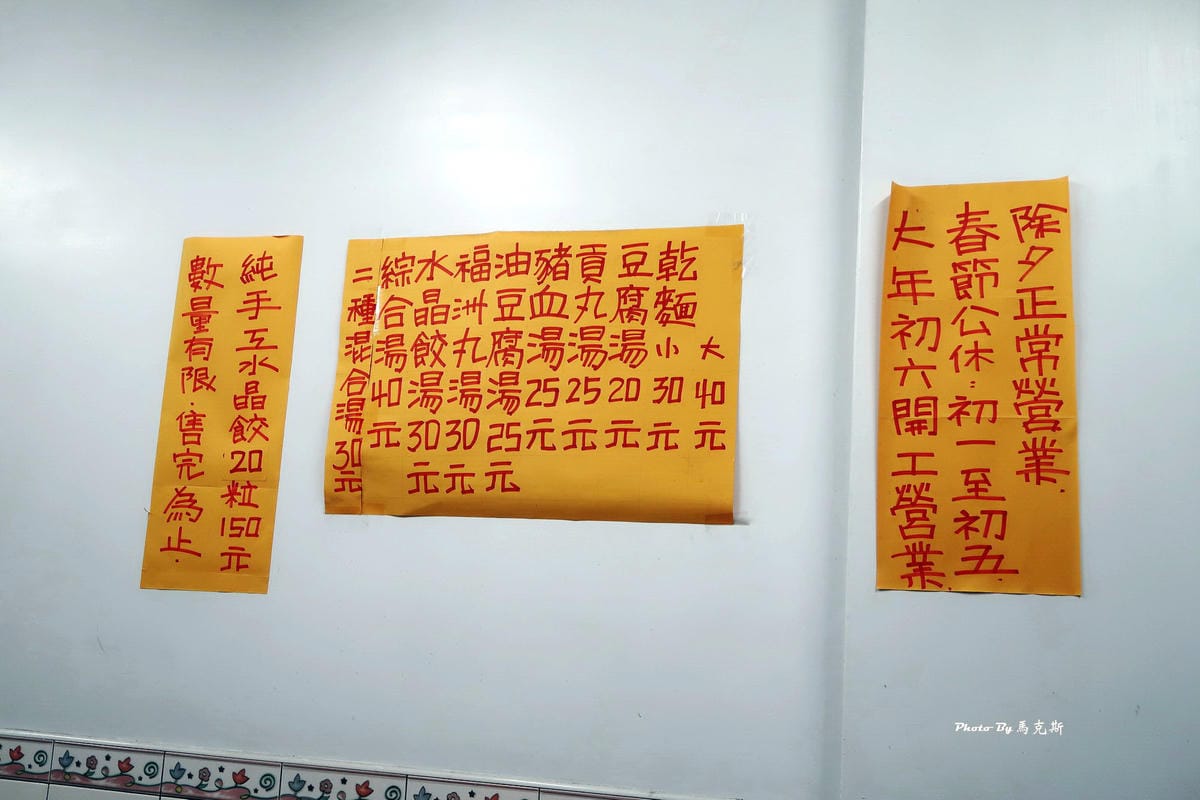 純手工水晶餃20粒150元
數量有限.售完為止.
乾麵小30元
大40元
豆腐湯20元
貢丸湯25元
豬血湯25元
油豆腐湯25元
福洲丸湯30元
水晶餃湯30元
綜合湯40元
二種混合湯30元
除夕正常營業.
春節公休:初一至初五.
大年初六開工營業.
Photo By 馬克斯